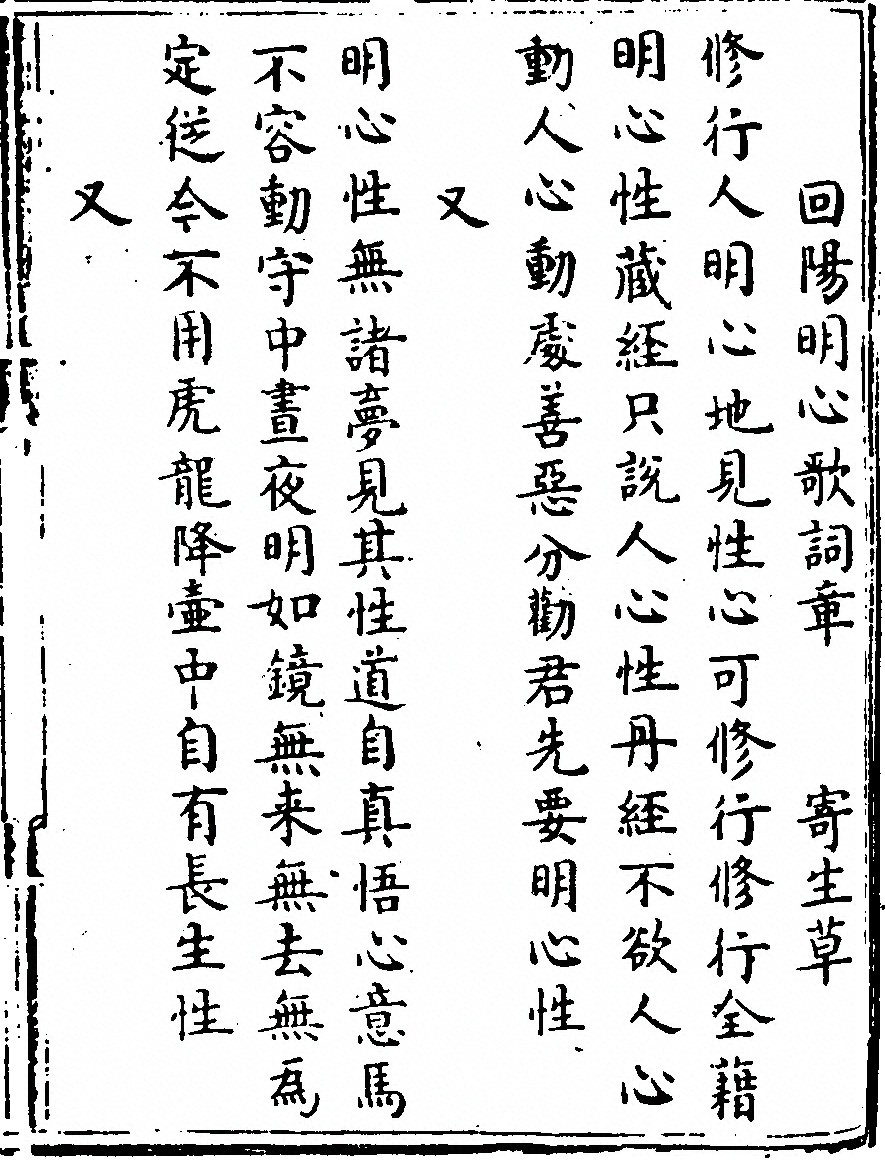 回陽明心歌詞章　寄生草
修行人明心地見性心可修行修行全藉
明心性蔵經只說人心性丹經不欲人心
動人心動處善惡分勸君先要明心性
又
明心性無諸夢見其性道自真悟心意馬
不容動守中晝夜明如鏡無来無去無為
定從今不用虎龍降壷中自有長生性
又